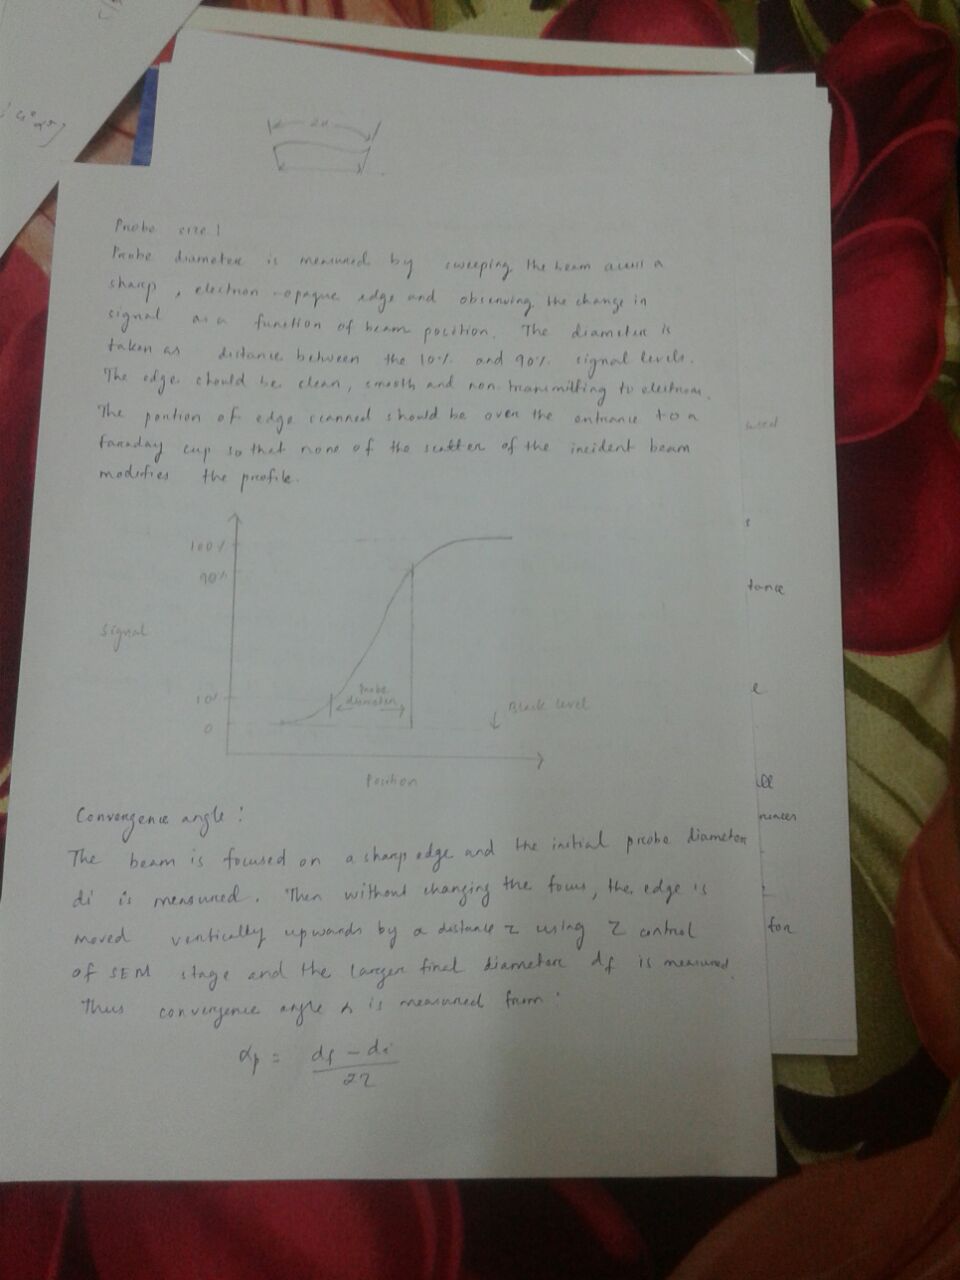 2α
Probe size!
Probe diameter is measured by sweeping the beam across a
sharp, electron-opaque edge and observing the change in
signal as a function of beam position. The diameter is
taken as distance between the 10% and 90% signal levels.
The edge should be clean, smooth and non-transmitting to electrons.
The portion of edge scanned should be over the entrance to a
faraday cup so that none of the scatter of the incident beam
modifies the profile.
100%
90%
Signal
10%
Probe
diameter
0
Black level
Position
Convergence angle:
The beam is focused on a sharp edge and the initial probe diameter
di is measured. Then without changing the focus, the edge is
moved vertically upwards by a distance z using Z control
of SEM stage and the larger final diameter df is measured.
Thus convergence angle α is measured from:
αp = df - di
2z
used
s
tance
e
all
rences
for